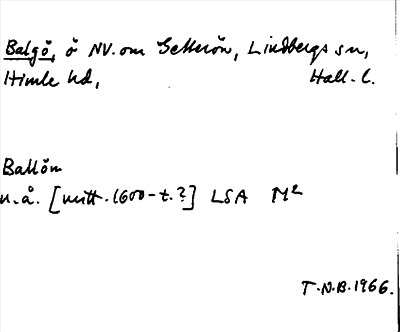 Balgö, ö NV. om Getterön, Lindbergs sn,
Himle hd, Hall. l.
Ballöm
u.å. [mitt. 1600-t.?] LSA M²
T.N.B. 1966.